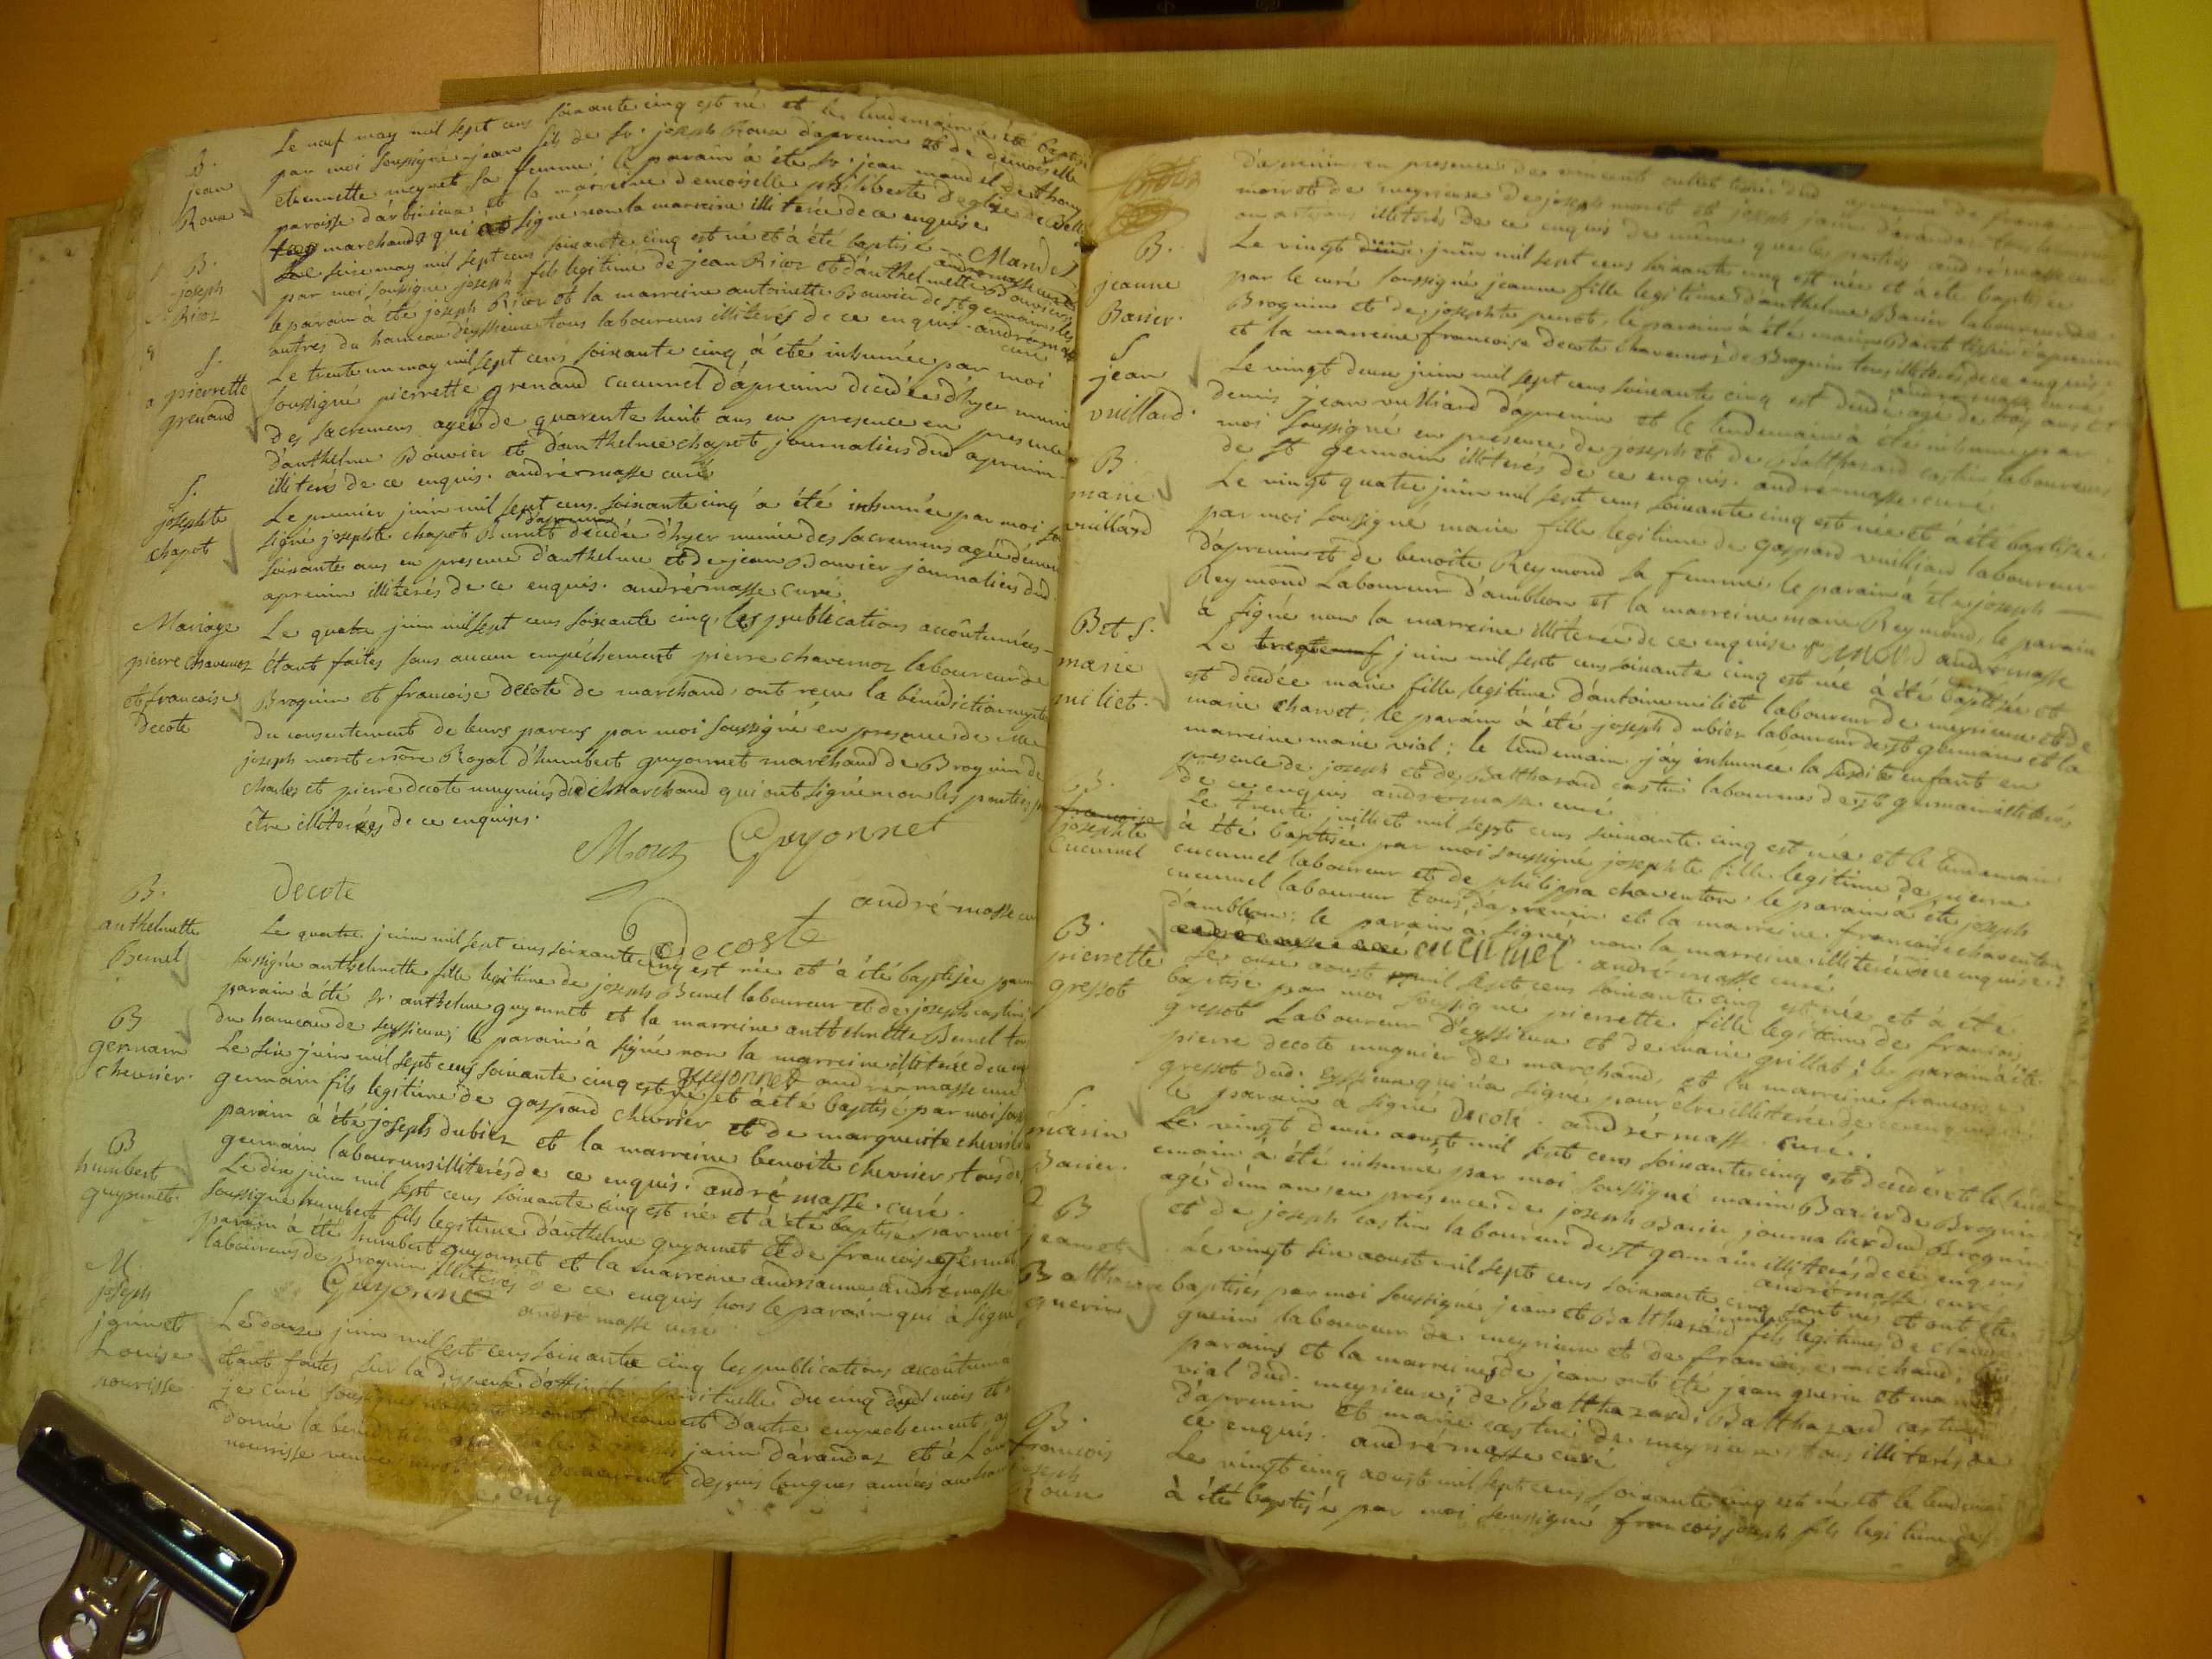 B.
jean
Roux
Le neuf may mil sept cens soixante cinq est né et le lendemain à été baptisé
par moi soussigné jean fils de Sr. joseph Roux d'apremin et de demoiselle
etiennette meynet sa femme; le parain à été Sr. jean mandel de thouy
paroisse d'arbinieux et la marreine demoiselle philiberte de
marchands qui signé non la marreine illiterée de ce enquise
Mandel
andré masse curé
B.
joseph
Rioz
Le seize may mil sept cens soixante cinq est né et à été baptisé
par moi soussigné joseph fils legitime de jean Rioz et d'anthelmette Bouvier
le parain à été joseph Rioz et la marreine antoinette Bouvier de st germain les
autres du hameau d'eyssieux tous laboureurs illiterés de ce enquis. andré masse
curé
S.
pierrette
grenaud
Le trente un may mil sept cens soixante cinq à été inhumée par moi
soussigné pierrette grenaud cucumel d'apremin decedée d'hyer munie
des sacremens agée de quarente huit ans en presence en presence
d'anthelme Bouvier et d'anthelme chapot journaliers dud apremin
illiterés de ce enquis. andré masse curé
S.
josephte
chapot
Le premier juin mil sept cens soixante cinq à été inhumée par moi sous
signé josephte chapot Burnet d'apremin decedée d'hyer munie des sacremens agée d'environ
soixante ans en presence d'anthelme et de jean Bouvier journaliers dud.
apremin illiterés de ce enquis. andré masse curé.
Mariage
pierre chavenoz
et francoise
Decote
Le quatre juin mil sept cens soixante cinq, les publications accoûtumées
étant faites sans aucun empêchement pierre chavernoz laboureur de
Brognin et francoise decote de marchand, ont reçu la bénédiction nuptiale
du consentement de leurs parens par moi soussigné en presence de Me
joseph moret Royal d'humbert guyonnet marchand de Brognin de
charles et pierre decote meuniers dud. Marchand qui ont signé non les parties pour
etre illiterées de ce enquises.
Guyonnet
Decote
andré masse curé
Decoste
B.
anthelmette
Burnel
Le quatre juin mil sept cens soixante cinq est née et à été baptisée par moi
soussigné anthelmette fille legitime de joseph Burnel laboureur et de joseph castin
parain à été Sr. anthelme guyonnet et la marreine anthelmette Burnel tous
du hameau de seyssieux; le parain à signé non la marreine illiterée de ce enq
guyonnet andré masse curé
B
germain
chevrier
Le six juin mil sept cens soixante cinq est né et à été baptisé par moi sous
germain fils legitime de gaspard chevrier et de marguerite chevrier
parain à été joseph dubiez et la marreine benoite chevrier, tous de
germain laboureurs illiterés de ce enquis. andré masse curé.
B
humbert
guyonnet
Le dix juin mil sept cens soixante cinq est né et à été baptisé par moi
soussigné humbert fils legitime d'anthelme guyonnet et de francoise
parain à été humbert guyonnet et la marreine andrianne andré masse
laboureurs de Brognin illiterés de ce enquis hors le parain qui à signé
Guyonnet
andré masse curé
M.
joseph
janin et
Louise
nourisse
Le douze juin mil sept cens soixante cinq les publications accoûtumé
étant faites sur la dispense spirituelle du cinq dud. mois et
je curé soussigné decouvert d'autre empechement, ay
donné la joseph janin d'arandaz et à Louise
nourrisse veuve demeurant depuis longues années au hameau
d'apremin en presence de vincent
moret de meyrieux de joseph moret et joseph janin d'arandaz
illiterés de ce enquis de même que les parties andré masse curé
B.
jeanne
Barier.
Le vingt juin mil sept cens soixante cinq est née et à été baptisée
par le curé soussigné jeanne fille legitime d'anthelme Barier laboureur de
Brognin et de josephte perrot, le parain à été marin Baret tissier d'apremin
et la marreine francoise decote chavernoz de Brognin tous illiterés de ce enquis.
andré masse curé
S
jean
vuillard.
Le vingt deux juin mil sept cens soixante cinq est decedé agé de trois ans et
demis jean vulliard d'apremin et le lendemain à été inhumé par
moi soussigné en presence de joseph et de Balthazard castin laboureurs
de st germain illiterés de ce enquis. andré masse curé
B.
marie
vuillard
Le vingt quatre juin mil sept cens soixante cinq est née et à été baptisée
par moi soussigné marie fille legitime de gaspard vuilliard laboureur
d'apremin et de benoite Reymond sa femme, le parain à été joseph
Reymond Laboureur d'ambleon et la marreine marie Reymond, le parain
à signé non la marreine illiterée de ce enquise andré masse
curé
B et S.
marie
miliet.
Le juin mil sept cens soixante cinq est née à été baptisée et
est decedée marie fille legitime d'antoine miliet laboureur de meyrieux et de
marie charvet; le parain à été joseph dubiez laboureur de st germain et la
marreine marie vial; le lendemain j'ay inhumée la susdite enfant en
presence de joseph et de Balthazard castin laboureurs de st germain illiterés
de ce enquis andré masse curé
B.
francoise
josephte
Cucumel
Le trente juillet mil sept cens soixante cinq est née et le lendemain
à été baptisée par moi soussigné josephte fille legitime de pierre
cucumel laboureur et de philippa chaventon, le parain à été joseph
cucumel laboureur tous d'apremin et la marreine francoise chaventon
d'ambleon; le parain à signé non la marreine illiterée de ce enquise
cucumel. andré masse curé
B.
pierrette
gressot
Le onze aoust mil sept cens soixante cinq est née et à été
baptisé par moi soussigné pierrette fille legitime de francois
gressot Laboureur d'eyssieux et de marie grillat; le parain à été
pierre decote meugnier de marchand, et la marreine francoise
gressot dud. Eyssieux qui n'a signé pour être illiterée de ce enquise
le parain à signé decote. andré masse curé.
S
marin
Barier.
Le vingt deux aoust mil sept cens soixante cinq est decedé et le lend
emain à été inhumé par moi soussigné marin Barier de Brognin
agé d'un an en presence de joseph Barier journalier dud Brognin
et de joseph castin laboureur de st germain illiterés de ce enquis
andré masse curé
2
B
jean et
Balthazard
guerin
Le vingt six aoust mil sept cens soixante cinq sont nés et ont été
baptisés par moi soussigné jean et Balthazard fils legitimes de claude
guerin laboureur de meyrieux et de francoise michaud; les
parains et la marreines de jean ont été jean guerin et marie
vial dud. meyrieux; de Balthazard, Balthazard castin
d'apremin et marie castin de meyrieux tous illiterés de
ce enquis. andré masse curé
B.
francois
joseph
Roux
Le vingt cinq aoust mil sept cens soixante cinq est né et le lendemain
à été baptisé par moi soussigné francois joseph fils legitime de